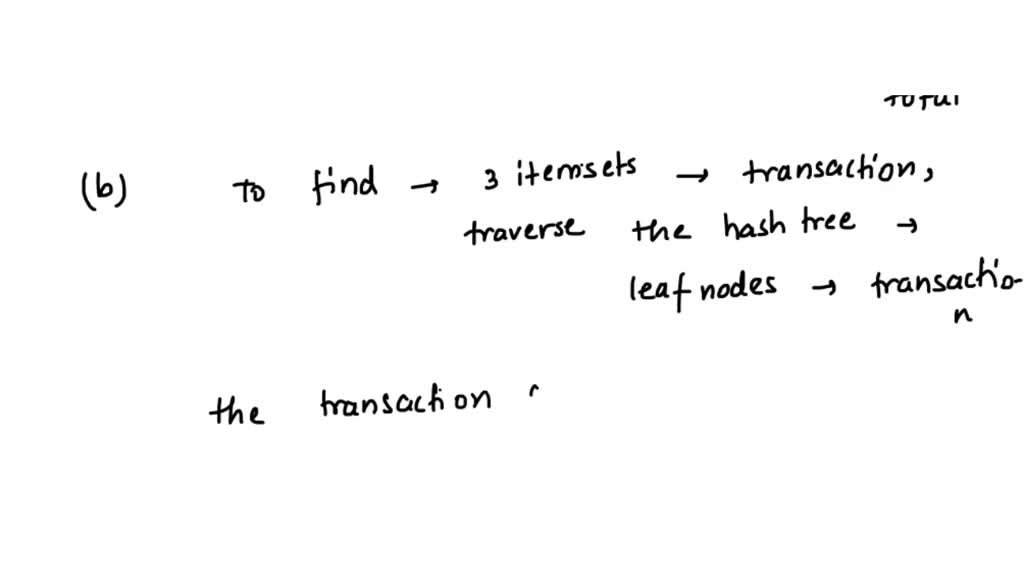 (b) To find → 3 itemsets → transaction,
traverse the hash tree →
leaf nodes → transactio-
n
the transaction